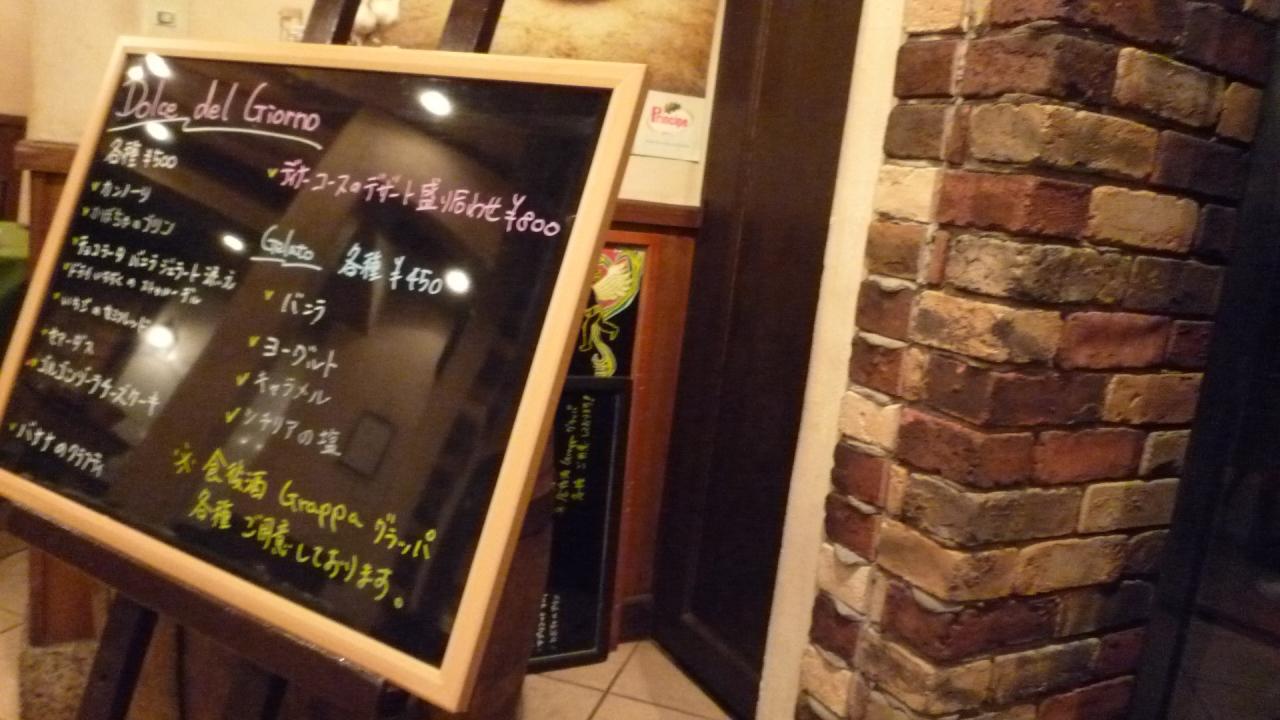 Dolce del Giorno
各種 ¥500
カンノーリ
かぼちゃのプリン
チョコラータ バニラジェラート添え
ドライいちじくの ストゥルーデル
いちごの
セアダス
ゴルゴンゾーラチーズケーキ
バナナのクラフティ
ディナーコースのデザート盛り合わせ ¥800
Gelato 各種 ¥450
バニラ
ヨーグルト
キャラメル
シチリアの塩
※ 食後酒 Grappa グラッパ
各種 ご用意しております。
Principe